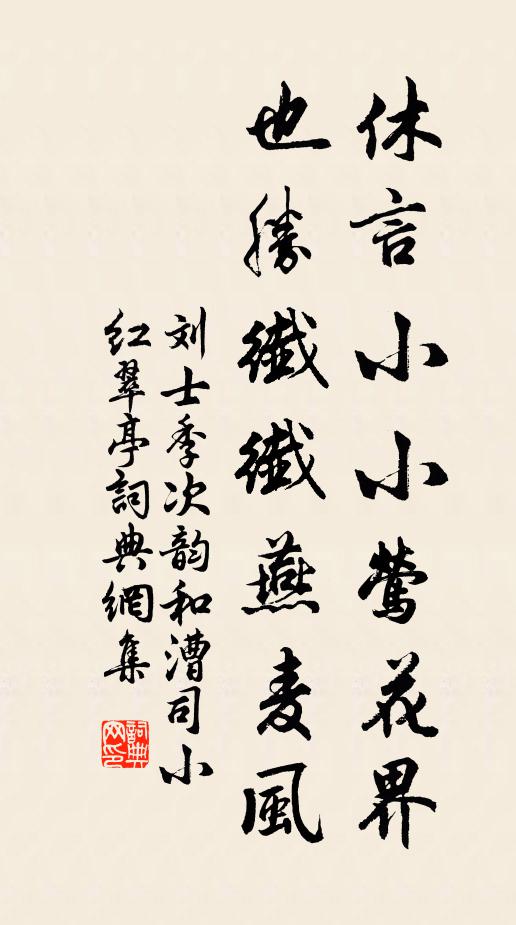 休言小小鶯花界
也勝纖纖燕麦風
刘士季次韵和漕司小
红翠亭詞典網集
詞典
网印